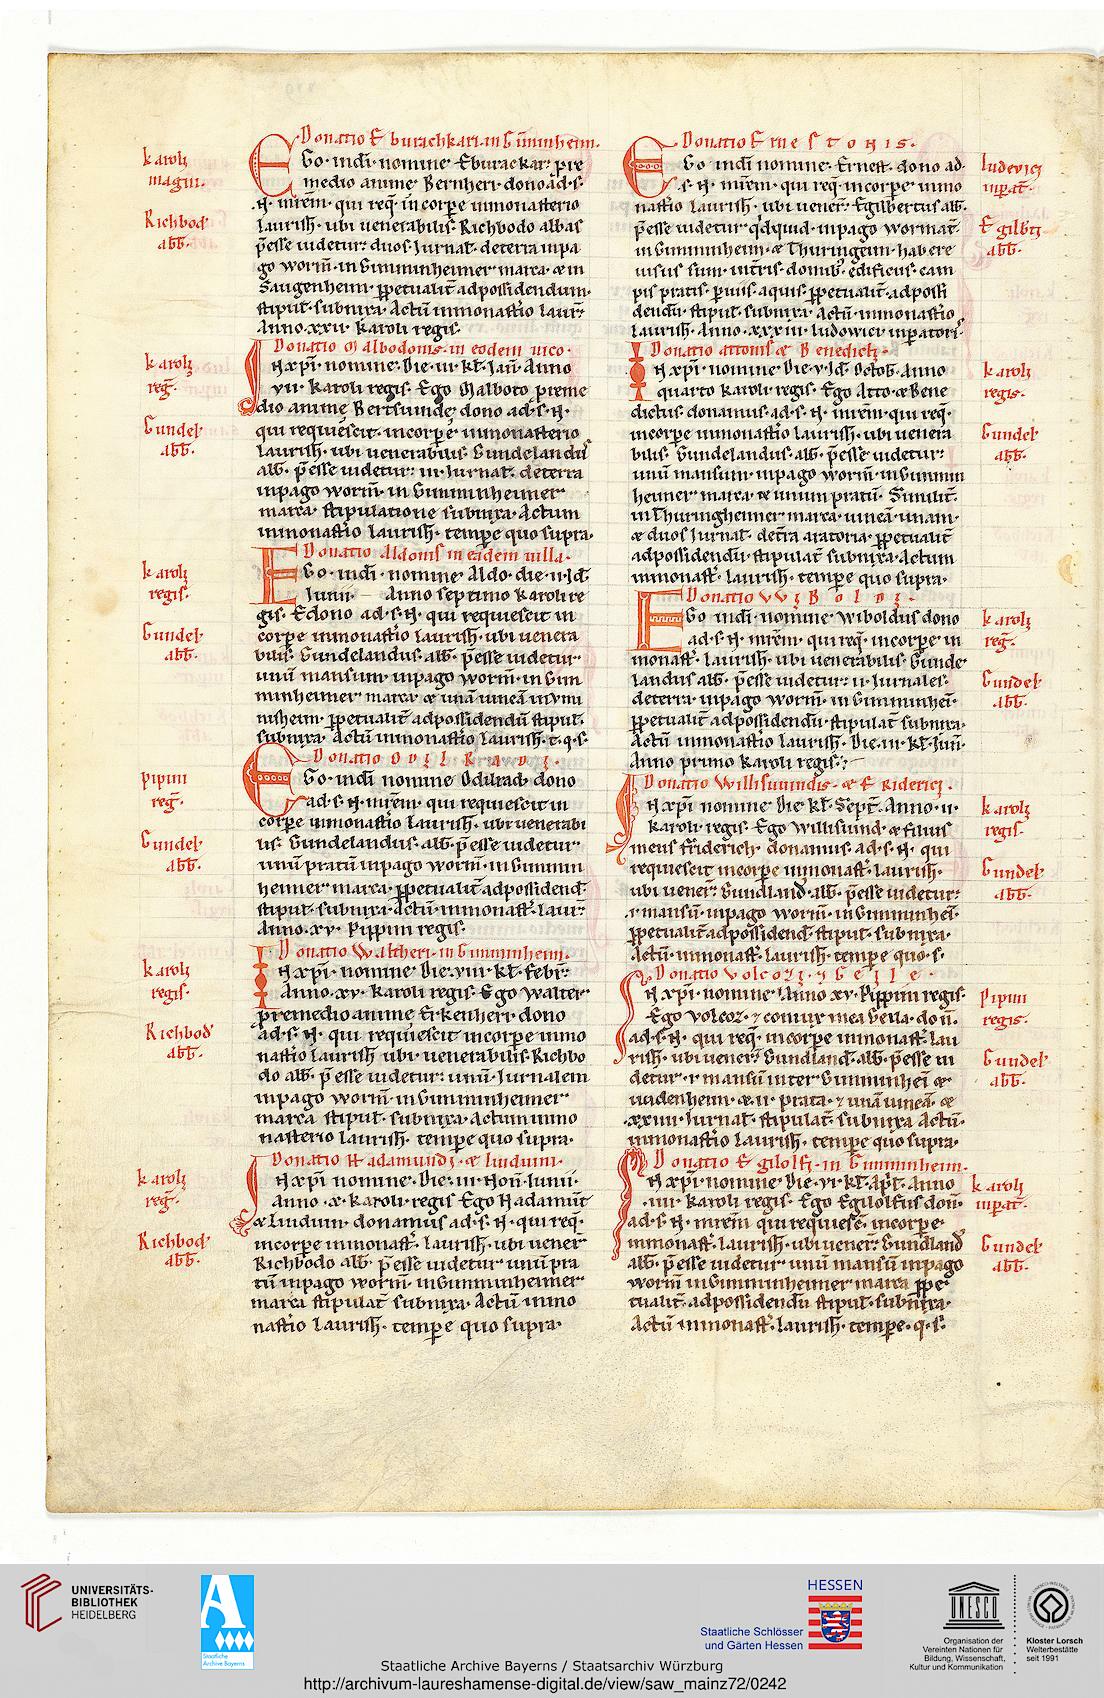 Donatio Eburachkari. in Gimminheim.
karolꝫ
magni.
Ego. in dī nomine. Eburackar. pre
medio anime Bernheri. dono ad .s.
.N. mrēm. qui req̄. in corpe in monasterio
Richbod
abb̄.
laurish. ubi uenerabilis Richbodo abbas
p̄esse uidetur. duos iurnaƚ. de terra in pa
go worm̄. in Gimminheimer marca. & in
Saugenheim. ꝑpetualit̄ ad possidendum.
stipuƚ. subnixa. Actū in monast̄io laur̄.
Anno .xxii. karoli regis.
Donatio Malbodonis. in eodem uico.
karolꝫ
reḡ.
In xp̄i nomine. Die .iii. kƚ. Jan̄. Anno
.vii. karoli regis. Ego Malboto preme
dio anime Bertsuinde dono ad .s. N.
Gundeƚ
abb̄.
qui requiescit. in corpe in monasterio
laurish. ubi uenerabilis Gundelandus
abb̄. p̄esse uidetur. iii. iurnaƚ. de terra
in pago worm̄. in Gimminheimer
marca. stipulatione subnixa. Actum
in monast̄io laurish. tempe quo supra.
Donatio Aldonis in eadem uilla.
karolꝫ
regis.
Ego. in dī. nomine Aldo. die .ii. Id.
Junii. Anno septimo karoli re
gis. Et dono ad .s. N. qui requiescit in
Gundeƚ
abb̄.
corpe in monast̄io laurish. ubi uenera
bilis. Gundelandus. abb̄. p̄esse uidetur
unū mansum in pago worm̄. in Gim
minheimer marca & unā uineā in
nisheim. ꝑpetualit̄ ad possidendū. stipuƚ.
subnixa. Actū in monast̄io laurish. t. q. s.
Donatio
pipini
reḡ.
Ego. in dī nomine Odilrad. dono
ad .s. N. mrēm. qui requiescit in
corpe in monast̄io laurish. ubi uenerabi
Gundeƚ
abb̄.
lis. Gundelandus. abb̄. p̄esse uidetur
unū pratū in pago worm̄. in Gimmin
heimer marca. ꝑpetualit̄ ad possidend.
stipuƚ. subnixa. Actū in monast̄. laur̄.
Anno .xv. Pippini regis.
Donatio Waltheri. in Gimminheim.
karolꝫ
regis.
In xp̄i. nomine. Die .viii. kƚ. febr̄.
Anno .xv. karoli regis. Ego Walter
pre medio anime Erkenheri dono
Richbod
abb̄.
ad .s. N. qui requiescit in corpe in mo
nast̄io laurish ubi uenerabilis. Richbo
do abb̄. p̄esse uidetur. unū. iurnalem
in pago worm̄. in Gimminheimer
marca stipuƚ. subnixa. Actum in mo
nasterio laurish. tempe quo supra.
Donatio Hadamundi. & liuduini.
karolꝫ
reḡ.
In xp̄i nomine. Die .iii. Non̄. Iunii.
Anno .x. karoli. regis Ego Hadamūt
& liuduin. donamus ad .s. N. qui req̄.
Richbod
abb̄.
in corpe in monast̄. laurish. ubi uener̄
Richbodo abb̄. p̄esse uidetur unū pra
tū in pago worm̄. in Gimminheimer
marca stipulat̄ subnixa. Actū in mo
nast̄io laurish. tempe quo supra.
Donatio Ernestonis.
ludevici
imp̄at̄.
Ego in dī nomine. Ernest. dono ad
.s. N. mrēm. qui req̄. in corpe in mo
nast̄io laurish. ubi uener̄. Egilbertus abb̄.
Egilbꝫ
abb̄.
p̄esse uidetur. qdquid. in pago wormat̄.
in Gimminheim. & Thuringeim. habere
uisus sum. in t̄ris. domib. edificiis. cam
pis pratis. ꝑuiis. aquis. ꝑpetualit̄. ad possi
dendū. stipuƚ. subnixa. Actū in monast̄io
laurish. Anno .xxxiii. ludowici imp̄atoris.
Donatio attonis & Benedicti.
karolꝫ
regis.
In xp̄i. nomine. Die .v. Id. Octob̄. Anno
quarto karoli regis. Ego Atto & Bene
dictus. donamus. ad .s. N. mrēm. qui req̄.
Gundeƚ
abb̄.
in corpe in monast̄io laurish. ubi uenera
bilis. Gundelandus. abb̄. p̄esse uidetur.
unū mansum in pago worm̄. in Gimmin
heimer marca & unum pratū. Similit̄.
in Thuringheimer marca. uineā unam.
& duos iurnaƚ. de t̄ra aratoria. ꝑpetualit̄
ad possidendū. stipulat̄ subnixa. Actum
in monast̄. laurish. tempe quo supra.
Donatio
karolꝫ
reḡ.
Ego in dī nomine Wiboldus dono
ad .s. N. mrēm. qui req̄. in corpe in
monast̄. laurish. ubi uenerabilis. Gunde
Gundeƚ
abb̄.
landus abb̄. p̄esse uidetur. ii. iurnales.
de terra in pago worm̄. in Gimminhei.
ꝑpetualit̄ ad possidendū. stipulat̄ subnixa.
Actū in monast̄io laurish. Die .iii. kƚ. Jun̄.
Anno primo karoli regis.
Donatio Willisuuindis. & friderici.
karolꝫ
regis.
In xp̄i nomine Die kƚ. Sept̄. Anno .ii.
karoli. regis. Ego Willisuind & filius
meus friderich. donamus. ad .s. N. qui
Gundeƚ
abb̄.
requiescit in corpe in monast̄. laurish.
ubi uener̄. Gundland. abb̄. p̄esse uidetur.
.i. mansū. in pago worm̄. in Gimminhei.
ꝑpetualit̄ ad possidend. stipuƚ. subnixa.
Actū. in monast̄. laurish. tempe quo .s.
Donatio
pipini
regis.
In xp̄i. nomine Anno xv. Pippini regis.
Ego volcoz. & coniux mea Geila. don̄.
ad .s. N. qui req̄. in corpe in monast̄. lau
Gundeƚ
abb̄.
rish. ubi uener̄. Gundland. abb̄. p̄esse ui
detur. i. mansū inter Gimminhei &
uuidenheim. & ii. prata. & unā uineā. &
.xxiiii. iurnaƚ. stipulat̄. subnixa Actū.
in monast̄io laurish. tempe quo supra.
Donatio Egilolfi. in Gimminheim.
karolꝫ
imp̄at̄.
In xp̄i nomine Die .vi. kƚ. Apr̄. Anno
.iiii. karoli regis. Ego Egilolfus don̄.
ad .s. N. mrēm qui requiesc̄. in corpe
Gundeƚ
abb̄.
in monast̄. laurish. ubi uener̄. Gundland
abb̄. p̄esse uidetur unū mansū in pago
worm̄ in Gimminheimer marca ꝑpe
tualit̄. ad possidendū stipuƚ. subnixa.
Actū in monast̄. laurish. tempe. q. s.
UNIVERSITÄTS-
BIBLIOTHEK
HEIDELBERG
Staatliche
Archive Bayerns
HESSEN
Staatliche Schlösser
und Gärten Hessen
UNESCO
Organisation der
Vereinten Nationen für
Bildung, Wissenschaft,
Kultur und Kommunikation
Kloster Lorsch
Welterbestätte
seit 1991
Staatliche Archive Bayerns / Staatsarchiv Würzburg
http://archivum-laureshamense-digital.de/view/saw_mainz72/0242